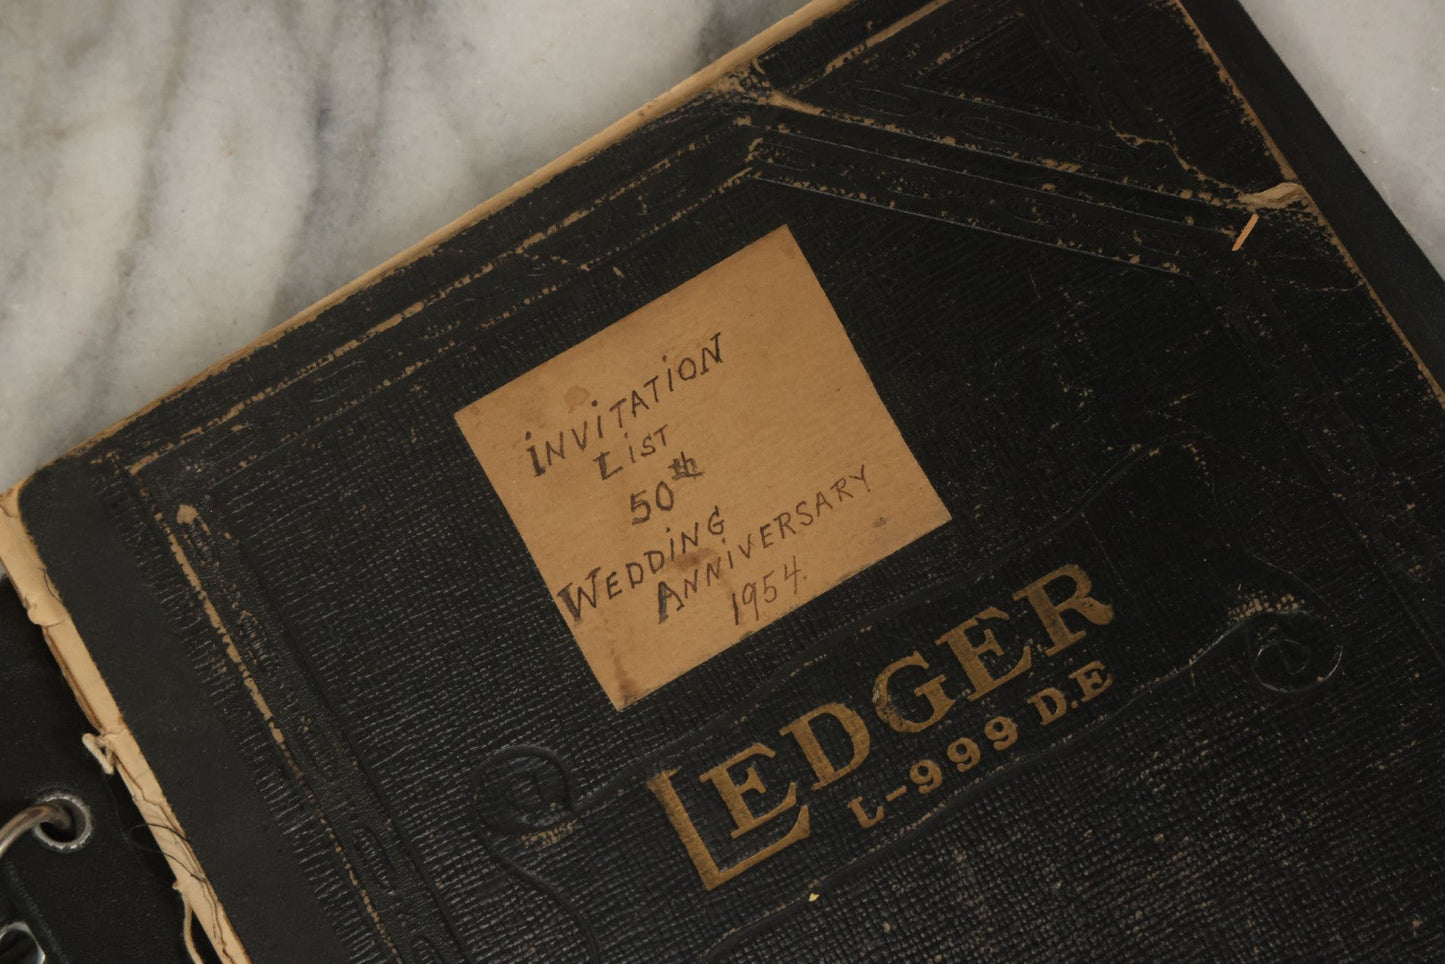 iNViTATiON
LiST
50th
WEDDiNG
ANNiVERSARY
1954.
LEDGER
L-999 D.E